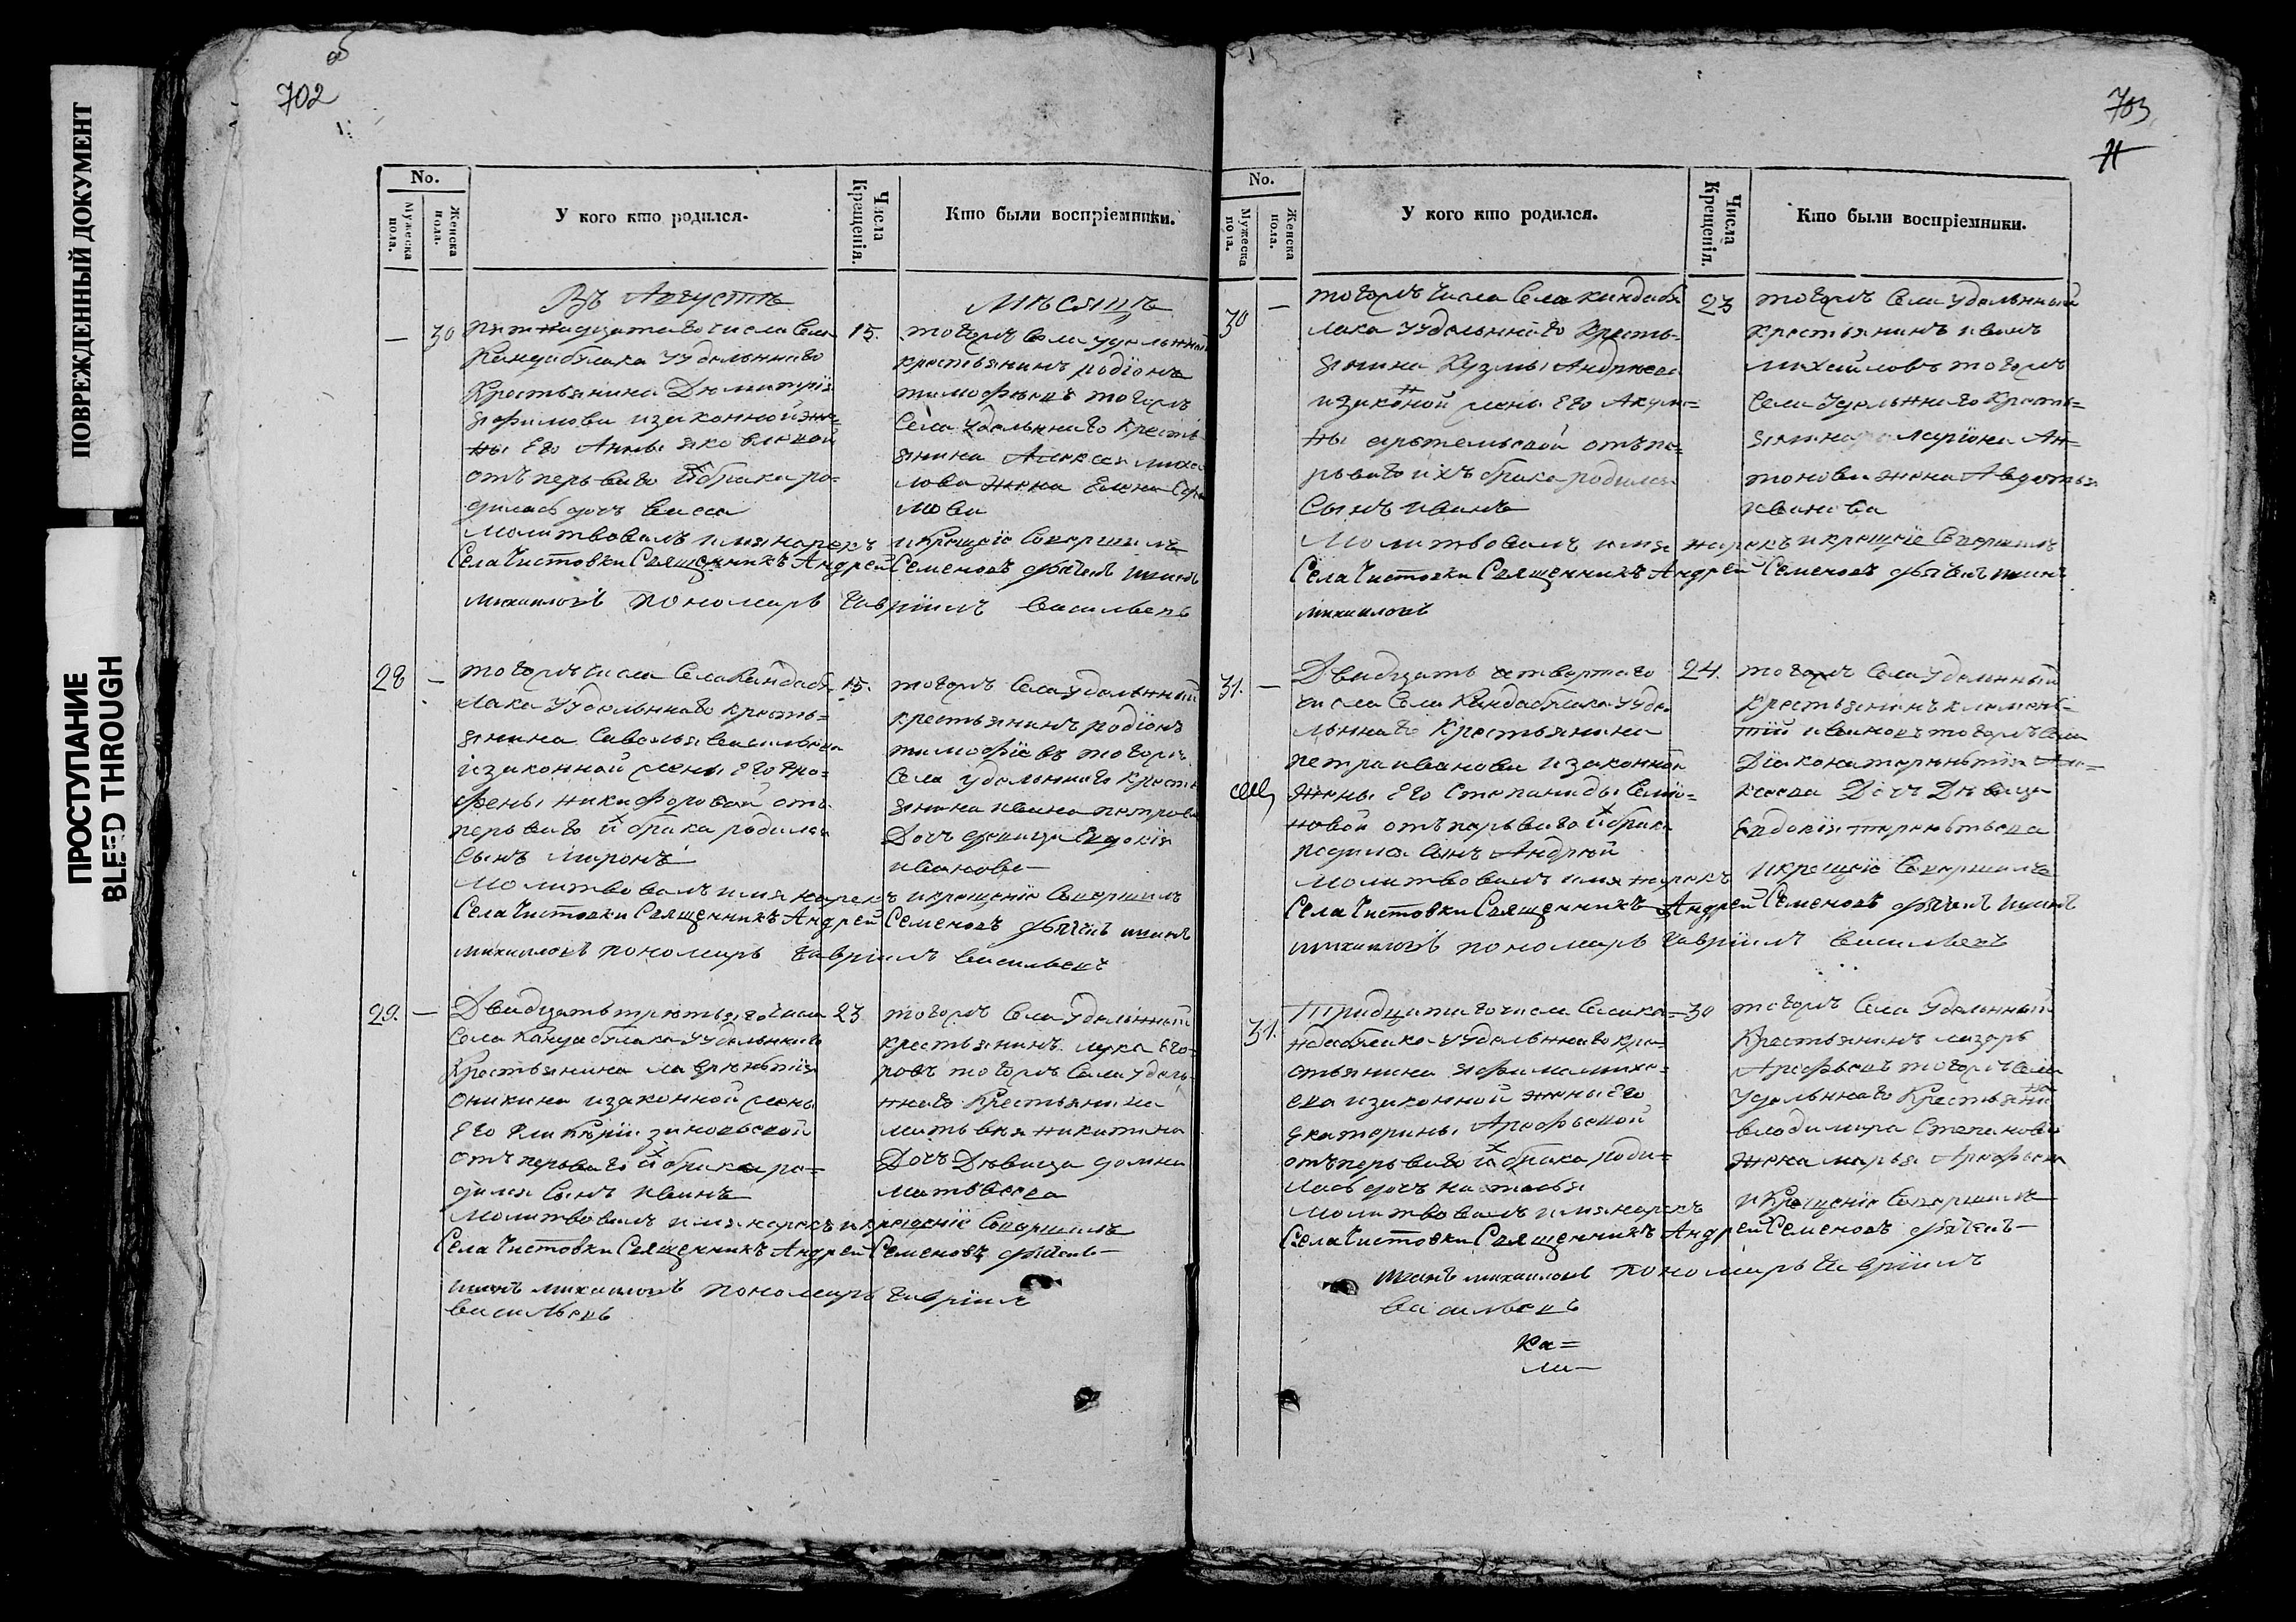 ПОВРЕЖДЕННЫЙ ДОКУМЕНТ
ПРОСТУПАНИЕ
BLEED THROUGH
об
702
No.
Мужеска пола.
Женска пола.
У кого кто родился.
Числа Крещенія.
Кто были воспріемники.
Въ Августѣ
Мѣсяцѣ
— 30
Пятнадцатаго числа Села
Кандабулака Удѣльнаго
Крестьянина Дмитрія
Ефимова изаконной же-
ны Его Анны яковлевой
отъ перваго ихъ брака ро-
дилась дочь васса
15.
тогожъ Села удѣльный
крестьянинъ родіонъ
тимофѣевъ тогожъ
Села Удѣльнаго Кресть
янина Алексея
лова жена Елена
мова
Молитвовалъ имя нарекъ и Крещеніе Совершилъ
Села Чистовки Священникъ Андрей Семеновъ дьячекъ иванъ
михаиловъ пономарь Гавріилъ васильевъ
28 —
тогожъ числа Села Кандаб
лака Удѣльнаго Кресть=
янина Савелья васильева
изаконной жены Его
никифоровой отъ
перваго ихъ брака родился
Сынъ миронъ
15.
тогожъ Села удѣльный
крестьянинъ родіонъ
тимофіевъ тогожъ
Села удѣльнаго Кресть
янина ивана петрова
Дочь девица Евдокія
иванова
Молитвовалъ имя нарекъ и крещеніе Совершилъ
Села Чистовки Священникъ Андрей Семеновъ дьячекъ иванъ
михаиловъ пономарь Гавріилъ васильевъ
29. —
Двадцать третьяго числа
Села Кандабулака Удѣльнаго
Крестьянина лаврентія
Оникина изаконной жены
Его Гликеріи зиновьевой
отъ перваго ихъ брака ро=
дился Сынъ иванъ
23
тогожъ Села Удѣльный
крестьянинъ лука Его-
ровъ тогожъ Села Удѣль-
наго Крестьянина
матвѣя никитина
Дочь Дѣвица домна
матвѣева
Молитвовалъ имя нарекъ и крещеніе Совершилъ
Села Чистовки Священникъ Андрей Семеновъ дьячекъ
иванъ михаиловъ пономарь Гавріилъ
васильевъ
703
No.
Мужеска пола.
Женска пола.
У кого кто родился.
Числа Крещенія.
Кто были воспріемники.
30 —
тогожъ числа Села Кандабу
лака Удѣльнаго Кресть-
янина Кузмы Андреева
изаконой жены Его Акули=
ны отъ пе=
рваго ихъ брака родился
Сынъ иванъ
23
тогожъ Села удѣльный
Крестьянинъ иванъ
михайловъ тогожъ
Села Удѣльнаго Кресть=
янина ларіона Ан=
тонова жена Авдотья
иванова
Молитвовалъ имя нарекъ и крещеніе Совершилъ
Села Чистовки Священникъ Андрей Семеновъ дьячекъ иванъ
михаиловъ
31. —
Двадцать четвертаго
числа Села Кандабулака Удѣ
льнаго Крестьянина
петра иванова изаконной
жены Его Степаниды Семіо=
новой отъ перваго ихъ брака
родился Сынъ Андрей
24.
тогожъ Села Удѣльный
Крестьянинъ клемен-
тій ивановъ тогожъ Села
Діакона терентія Але=
ксеева Дочь Дѣвица
Евдокія терентьева
Молитвовалъ имя нарекъ и крещеніе Совершилъ
Села Чистовки Священникъ Андрей Семеновъ дьячекъ иванъ
михаиловъ пономарь Гавріилъ васильевъ
31.
Тридцатаго числа Села Ка=
ндабулака Удѣльнаго кре=
стьянина ефима михе=
ева изаконной жены Его
Екатерины Арефьевой
отъ перваго ихъ брака роди=
лась дочь наталья
30
тогожъ Села Удѣльный
Крестьянинъ лазарь
Арефьевъ тогожъ Села
Удѣльнаго Крестьянина
владимира Степанова
жена марья Арефьева
Молитвовалъ имя нарекъ и Крещеніе Совершилъ
Села Чистовки Священникъ Андрей Семеновъ дьячекъ
иванъ михаиловъ пономарь Гавріилъ
васильевъ
Ка=